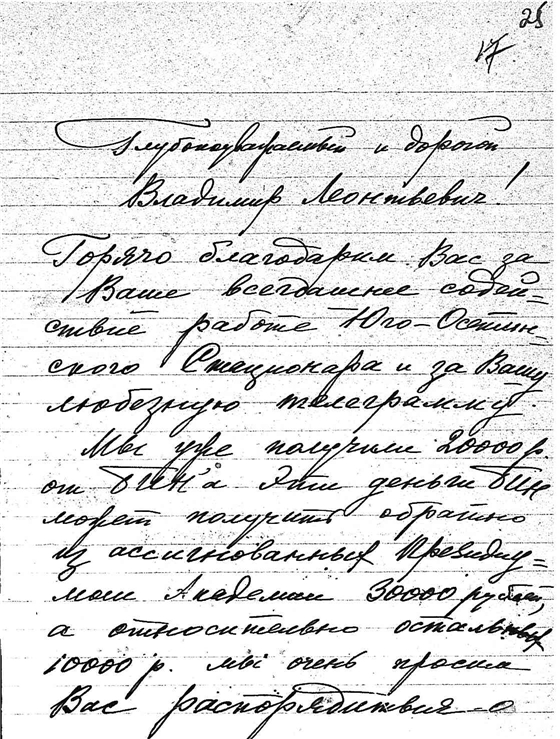 25
17
Глубокоуважаемый и дорогой
Владимир Леонтьевич!
Горячо благодарим Вас за
Ваше всегдашнее содей=
ствие работе Юго-Осетин=
ского Стационара и за Вашу
любезную телеграмму.
Мы уже получили 20000 р.
от БИН'а Эти деньги БИН
может получить обратно
из ассигнованных Президиу=
мом Академии 30000 рублей,
а относительно остальных
10000 р. мы очень просим
Вас распорядиться о